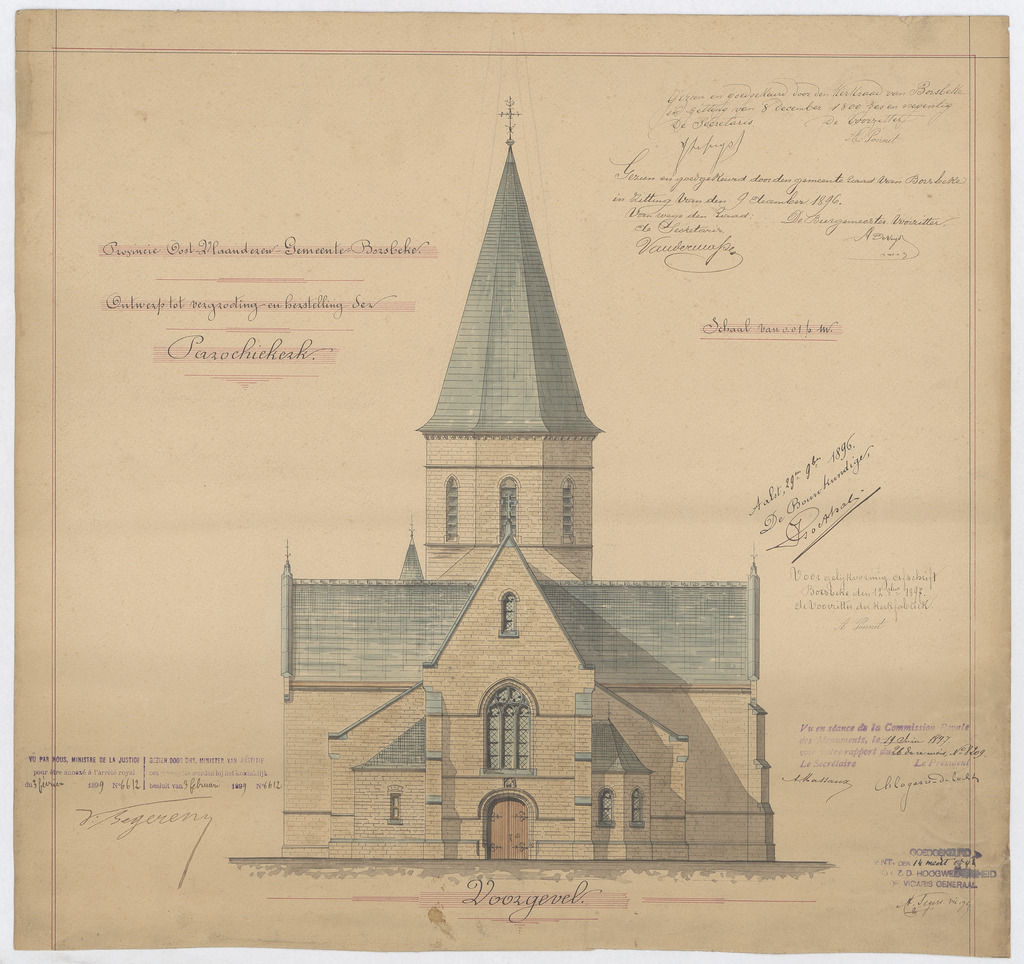 Gezien en goedgekeurd door den Kerkraad van Borsbeke
in zitting van 8 december 1800 zes en negentig
De Secretaris De Voorzitter
Gezien en goedgekeurd door den gemeente raad van Borsbeke
in Zitting van den 9 december 1896.
Van wege den Raad:
De Burgemeester Voorzitter.
de Secretaris
Provincie Oost-Vlaanderen - Gemeente - Borsbeke.
Ontwerp tot vergrooting en herstelling der
Parochiekerk.
Schaal van 0.01 p. m.
Aalst, 29n 9b 1896.
De Bouwkundige,
Voor gelijkvormig afschrift
Borsbeke den 12 1897.
de Voorzitter der Kerkfabriek.
Vu en séance de la Commission Royale
des Monuments, le 19 Juin 1897
rapport du 26 de ce mois, No
Le Secrétaire Le Président
VU PAR NOUS, MINISTRE DE LA JUSTICE
pour être annexé à l'arrêté royal
du 3 février 1899 No 6612
GEZIEN DOOR ONS, MINISTER VAN JUSTITIE
om worden bij het koninklijk
besluit van 3 februari 1899 No 6612
GOEDGEKEURD
14 maart
Z. D. HOOGWEERDIGHEID
VICARIS GENERAAL
Voorgevel.